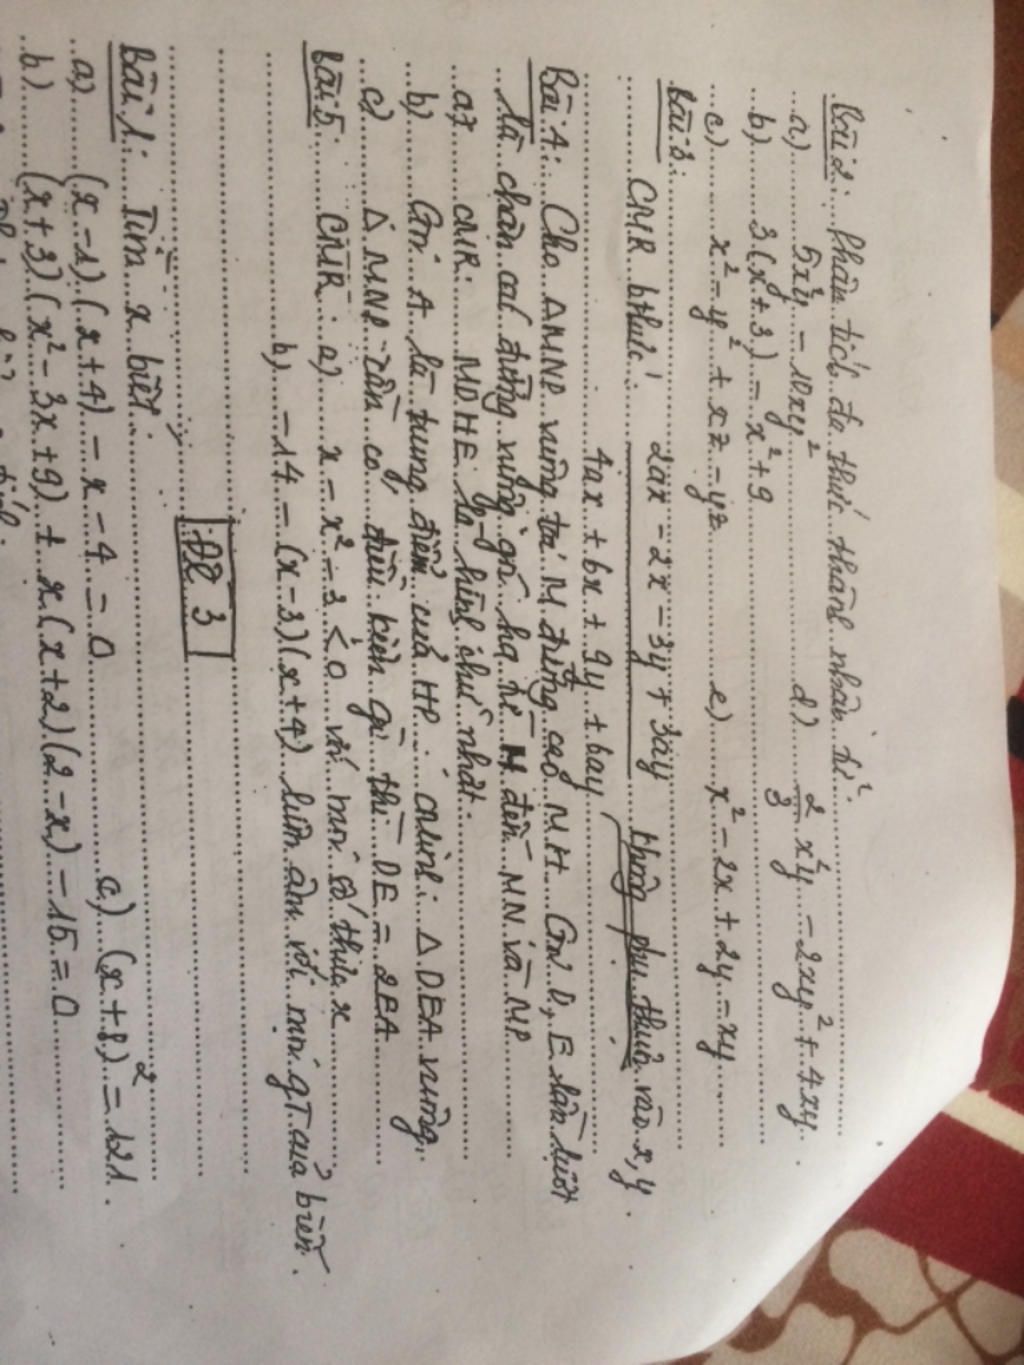 Bài 2: Phân tích đa thức thành nhân tử.
a) 5x²y - 10xy² d) 2/3 x²y - 2xy² + 4xy.
b) 3(x+3) - x² + 9
c) x² - y² + xz - yz e) x² - 2x + 2y - xy
Bài 3:
CMR bthức: 2ax - 2x - 3y + 3ay không phụ thuộc vào x, y.
4ax + 6x + 9y + 6ay
Bài 4: Cho ΔMNP vuông tại M đường cao MH. Gọi D, E lần lượt
là chân các đường vuông góc hạ từ H đến MN và MP
a) CMR: MDHE là hình chữ nhật.
b) Gọi A là trung điểm của HP. CMinh: ΔDEA vuông.
c) ΔMNP cần có điều kiện gì thì DE = 2EA
Bài 5: CMR: a) x - x² - 3 < 0 với mọi số thực x
b) -14 - (x-3)(x+4) luôn âm với mọi gT của biến.
ĐỀ 3
Bài 1: Tìm x biết:
a) (x-1)(x+4) - x - 4 = 0 c) (x+8)² = 121.
b) (x+3)(x² - 3x + 9) + x(x+2)(2-x) - 15 = 0